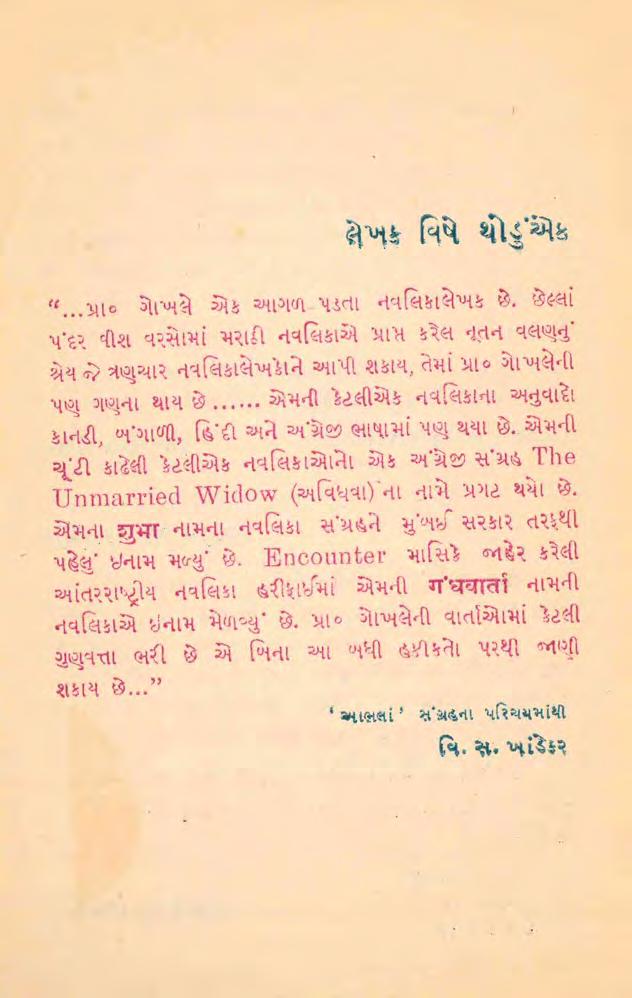 લેખક વિષે થોડુંએક
“...પ્રા૦ ગોખલે એક આગળ પડતા નવલિકાલેખક છે. છેલ્લાં
પંદર વીશ વરસોમાં મરાઠી નવલિકાએ પ્રાપ્ત કરેલ નૂતન વલણનું
શ્રેય જે ત્રણચાર નવલિકાલેખકોને આપી શકાય, તેમાં પ્રા૦ ગોખલેની
પણ ગણના થાય છે...... એમની કેટલીએક નવલિકાના અનુવાદો
કાનડી, બંગાળી, હિંદી અને અંગ્રેજી ભાષામાં પણ થયા છે. એમની
ચૂંટી કાઢેલી કેટલીએક નવલિકાઓનો એક અંગ્રેજી સંગ્રહ The
Unmarried Widow (અવિધવા)ના નામે પ્રગટ થયો છે.
એમના શુમા નામના નવલિકા સંગ્રહને મુંબઈ સરકાર તરફથી
પહેલું ઇનામ મળ્યું છે. Encounter માસિકે જાહેર કરેલી
આંતરરાષ્ટ્રીય નવલિકા હરીફાઈમાં એમની ગંધવાર્તા નામની
નવલિકાએ ઇનામ મેળવ્યું છે. પ્રા૦ ગોખલેની વાર્તાઓમાં કેટલી
ગુણવત્તા ભરી છે એ બિના આ બધી હકીકતો પરથી જાણી
શકાય છે...”
‘આભલાં’ સંગ્રહના પરિચયમાંથી
વિ. સ. ખાંડેકર